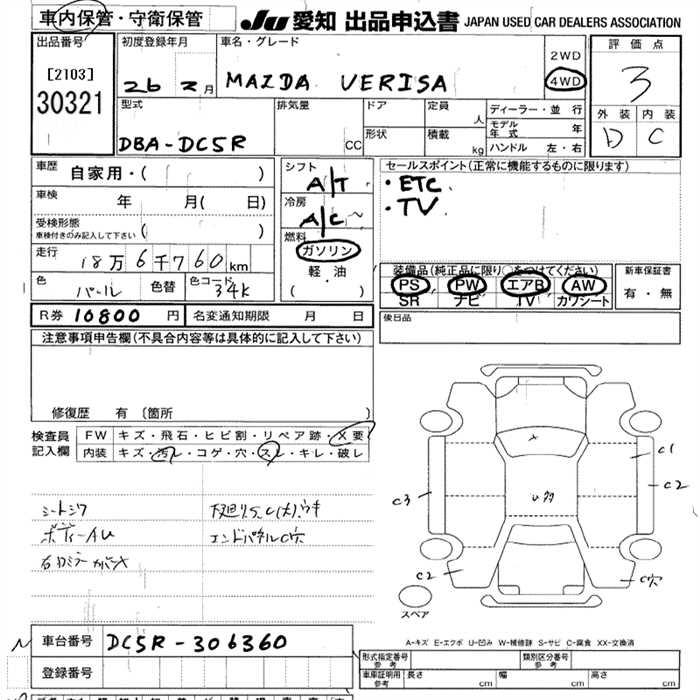 車内保管・守衛保管 JU 愛知 出品申込書 JAPAN USED CAR DEALERS ASSOCIATION
出品番号
[2103]
30321
初度登録年月
26 2月
車名・グレード
MAZDA VERISA
2WD
4WD
評価点
3
外装 内装
D C
型式
DBA-DC5R
排気量
CC
ドア
形状
定員
人
積載
kg
ディーラー・並行
モデル年式 年
ハンドル 左・右
車歴
自家用・( )
車検
年 月( 日)
受検形態
車検付きのみ記入して下さい ( )
走行
18万6千760km
色
パール
色替
色コード
34K
シフト
A/T
冷房
A/C
燃料
ガソリン
軽・油
( )
セールスポイント(正常に機能するものに限ります)
・ETC.
・TV.
装備品(純正品に限り○をつけてください)
PS PW エアB AW
SR ナビ TV カワシート
新車保証書
有・無
R券 10800 円
名変通知期限 月 日
後日品
注意事項申告欄(不具合内容等は具体的に記入して下さい)
修復歴 有 〔箇所 〕
検査員
記入欄
FW キズ・飛石・ヒビ割・リペア跡・X要
内装 キズ・汚レ・コゲ・穴・スレ・キレ・破レ
シートシワ
ボディーAU
エンドパネルC穴
C1
C2
C3
U多
C2
C穴
スペア
A-キズ E-エクボ U-凹み W-補修跡 S-サビ C-腐食 XX-交換済
車台番号
DC5R-306360
登録番号
形式指定番号
参考
類別区分番号
参考
車庫証明用
参考
長さ cm 幅 cm 高さ cm